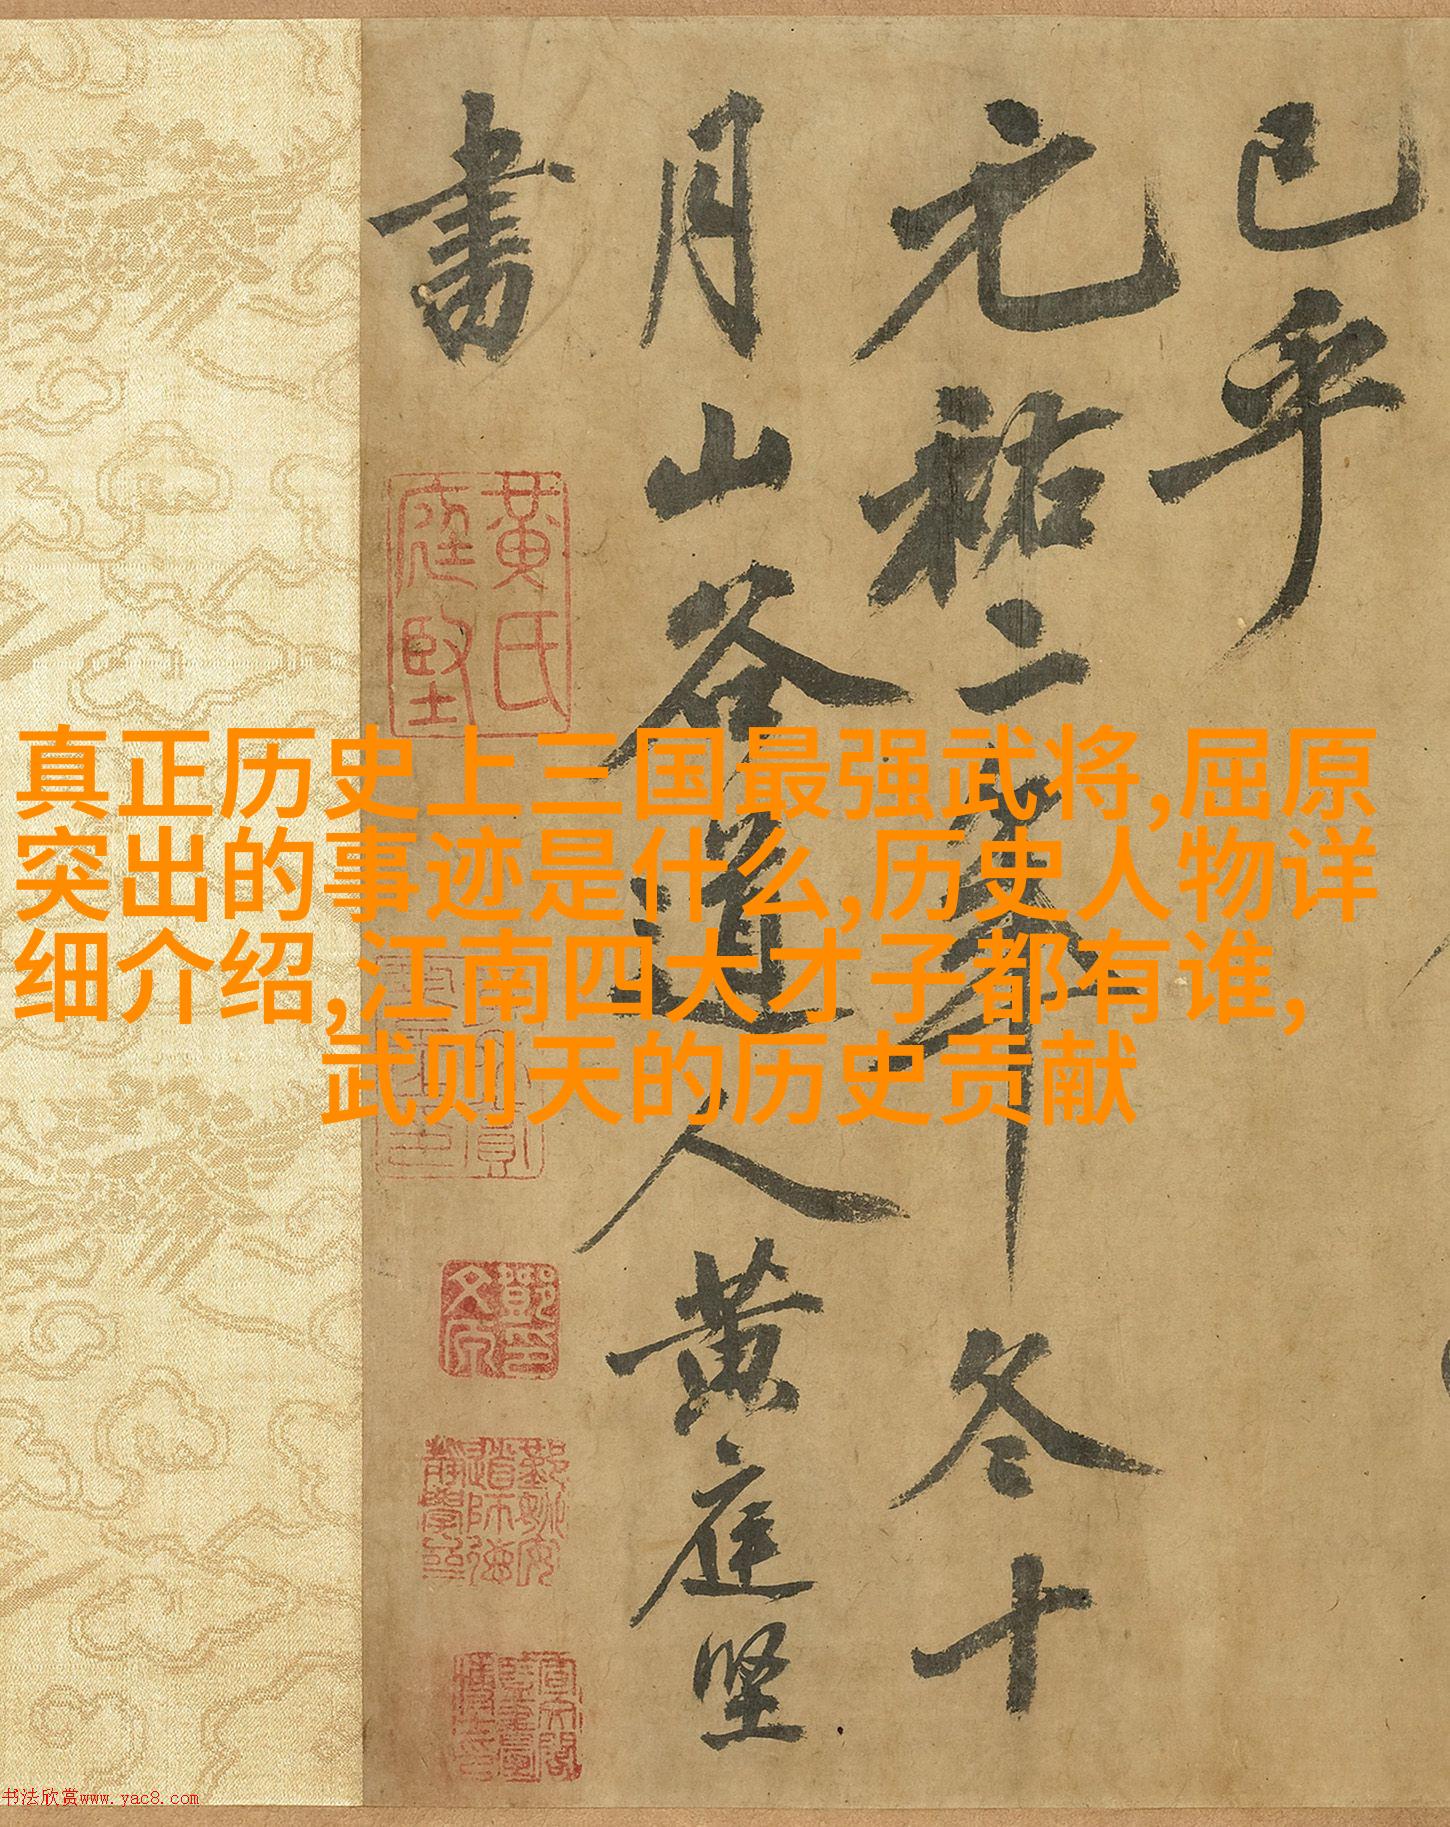 已乎
元祐二年冬十
月山谷道人黄庭坚
書
黃氏
庭堅
真正历史上三国最强武将,屈原
突出的事迹是什么,历史人物详
细介绍,江南四大才子都有谁,
武则天的历史贡献
书法欣赏www.yac8.com